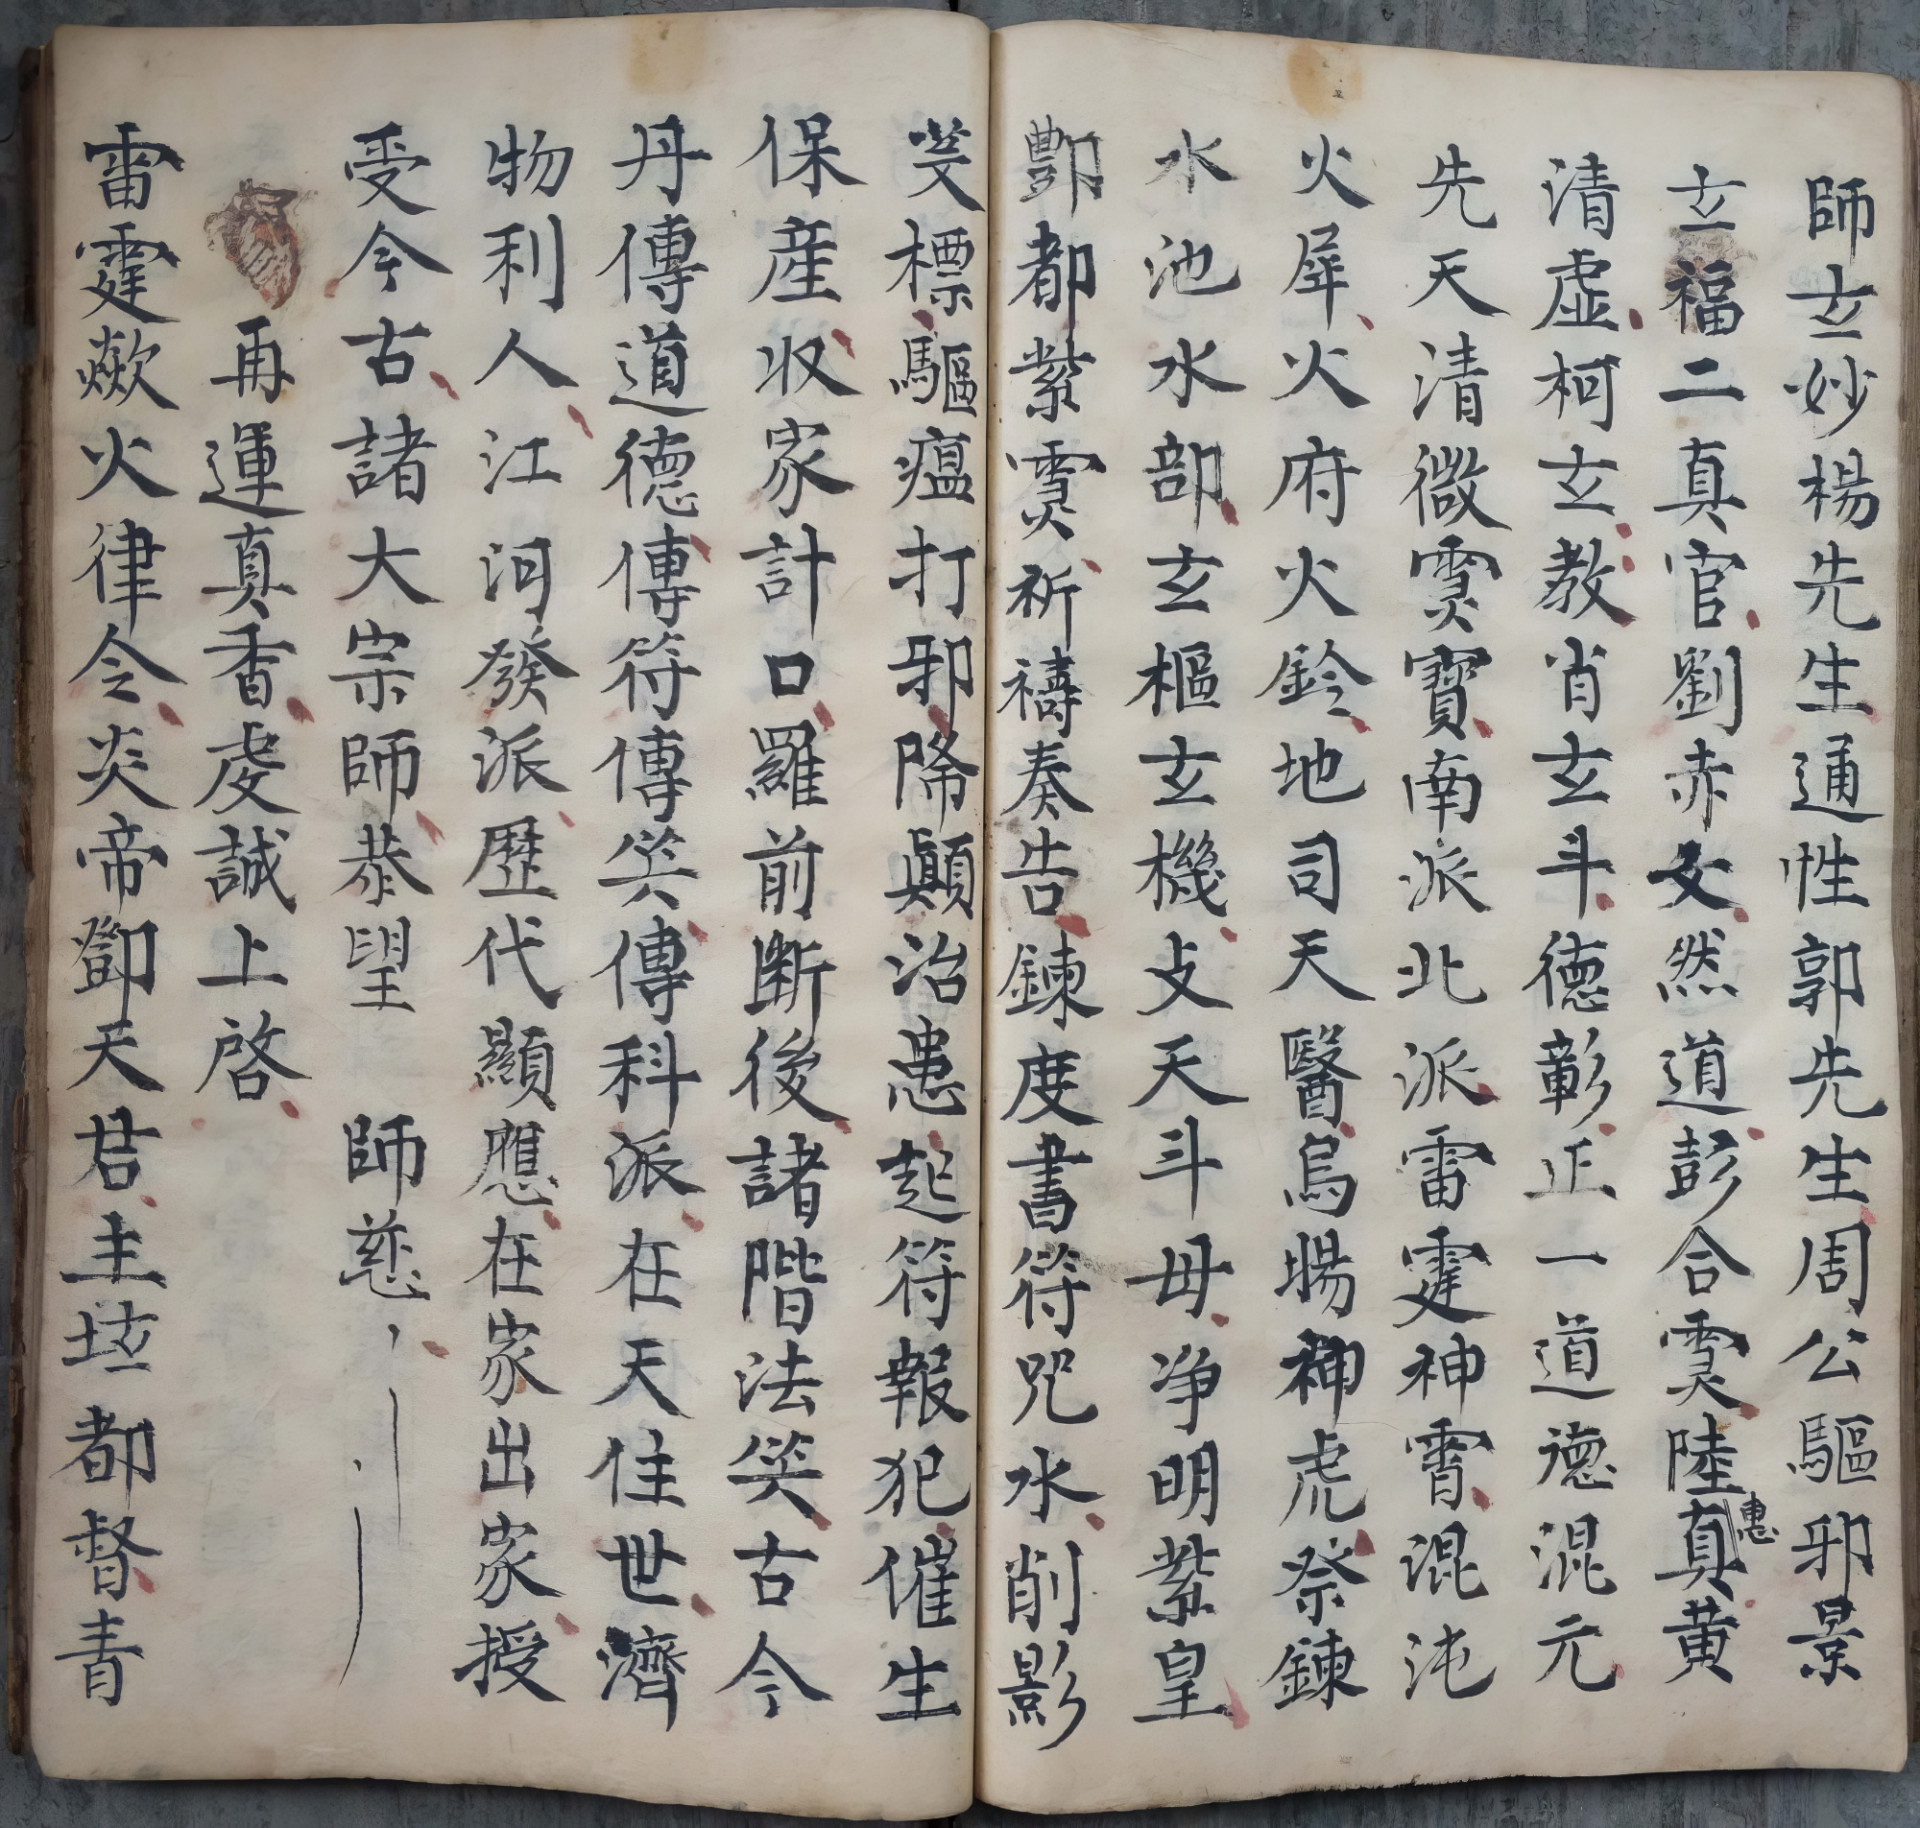 師玄妙楊先生通性郭先生周公驅邪景
玄福二真官劉赤文然道彭合霛陸真惠黄
清虚柯玄教肖玄斗德彰正一道德混元
先天清微霛寶南派北派雷霆神霄混沌
火犀火府火鈴地司天醫烏暘神虎祭鍊
水池水部玄樞玄機攴天斗母净明紫皇
酆都紫霛祈禱奏告鍊度書符咒水削影
標驅瘟打邪除顛治患起符報犯催生
保産收家計口羅前断後諸階法笑古今
丹傳道德傳符傳笑傳科派在天住世濟
物利人江河發派歷代顯應在家出家授
受今古諸大宗師恭望 師慈
再運真香虔誠上啓
雷霆歘火律令炎帝鄧天君主坛都督青